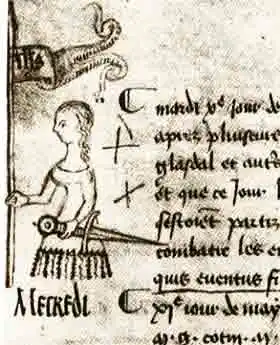 ihs
mardi xe jour de
aprez pluseurs
glasdal et autr
et que ce jour
sestoiet partiz
combatre les en
quis eventus f
Mecredi
xie jour de may